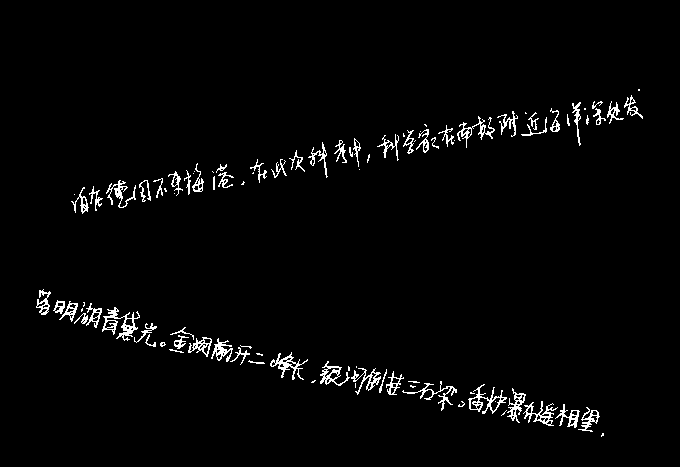 泊在德国不来梅港。在此次科考中，科学家在南极附近海洋深处发
落明湖青黛光。金阙前开二峰长，银河倒挂三石梁。香炉瀑布遥相望，